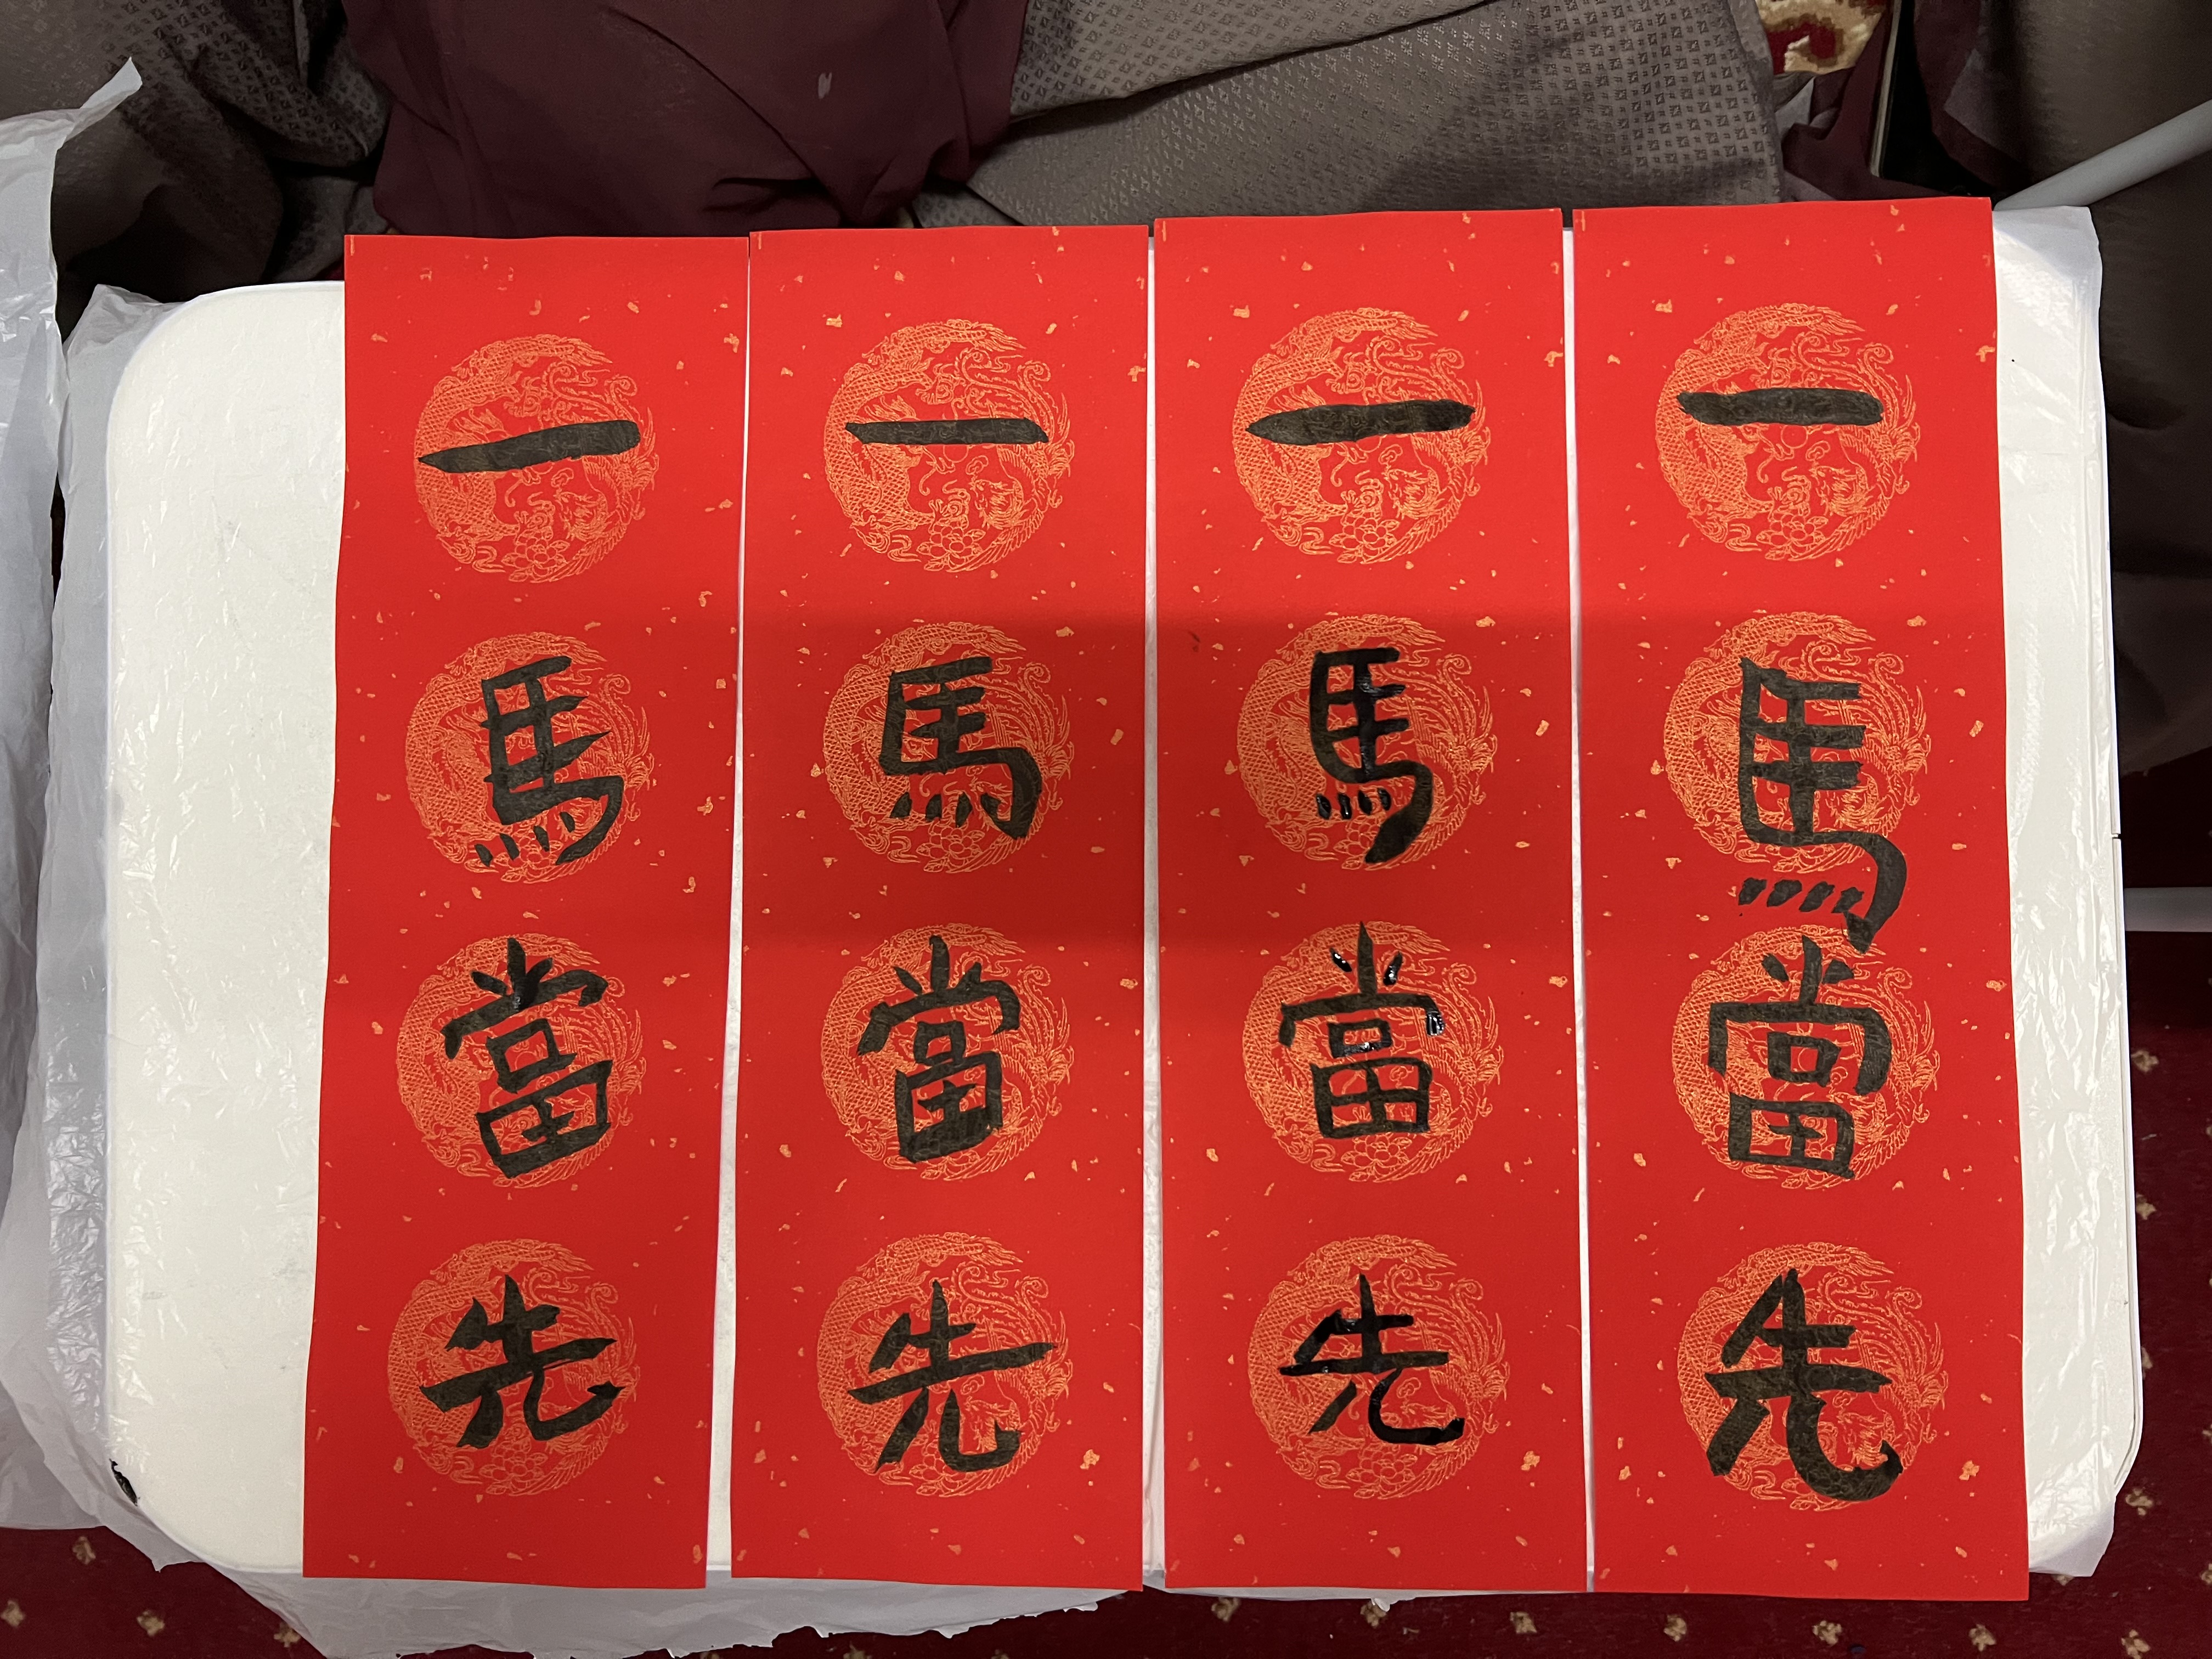 一馬當先
一馬當先
一馬當先
一馬當先